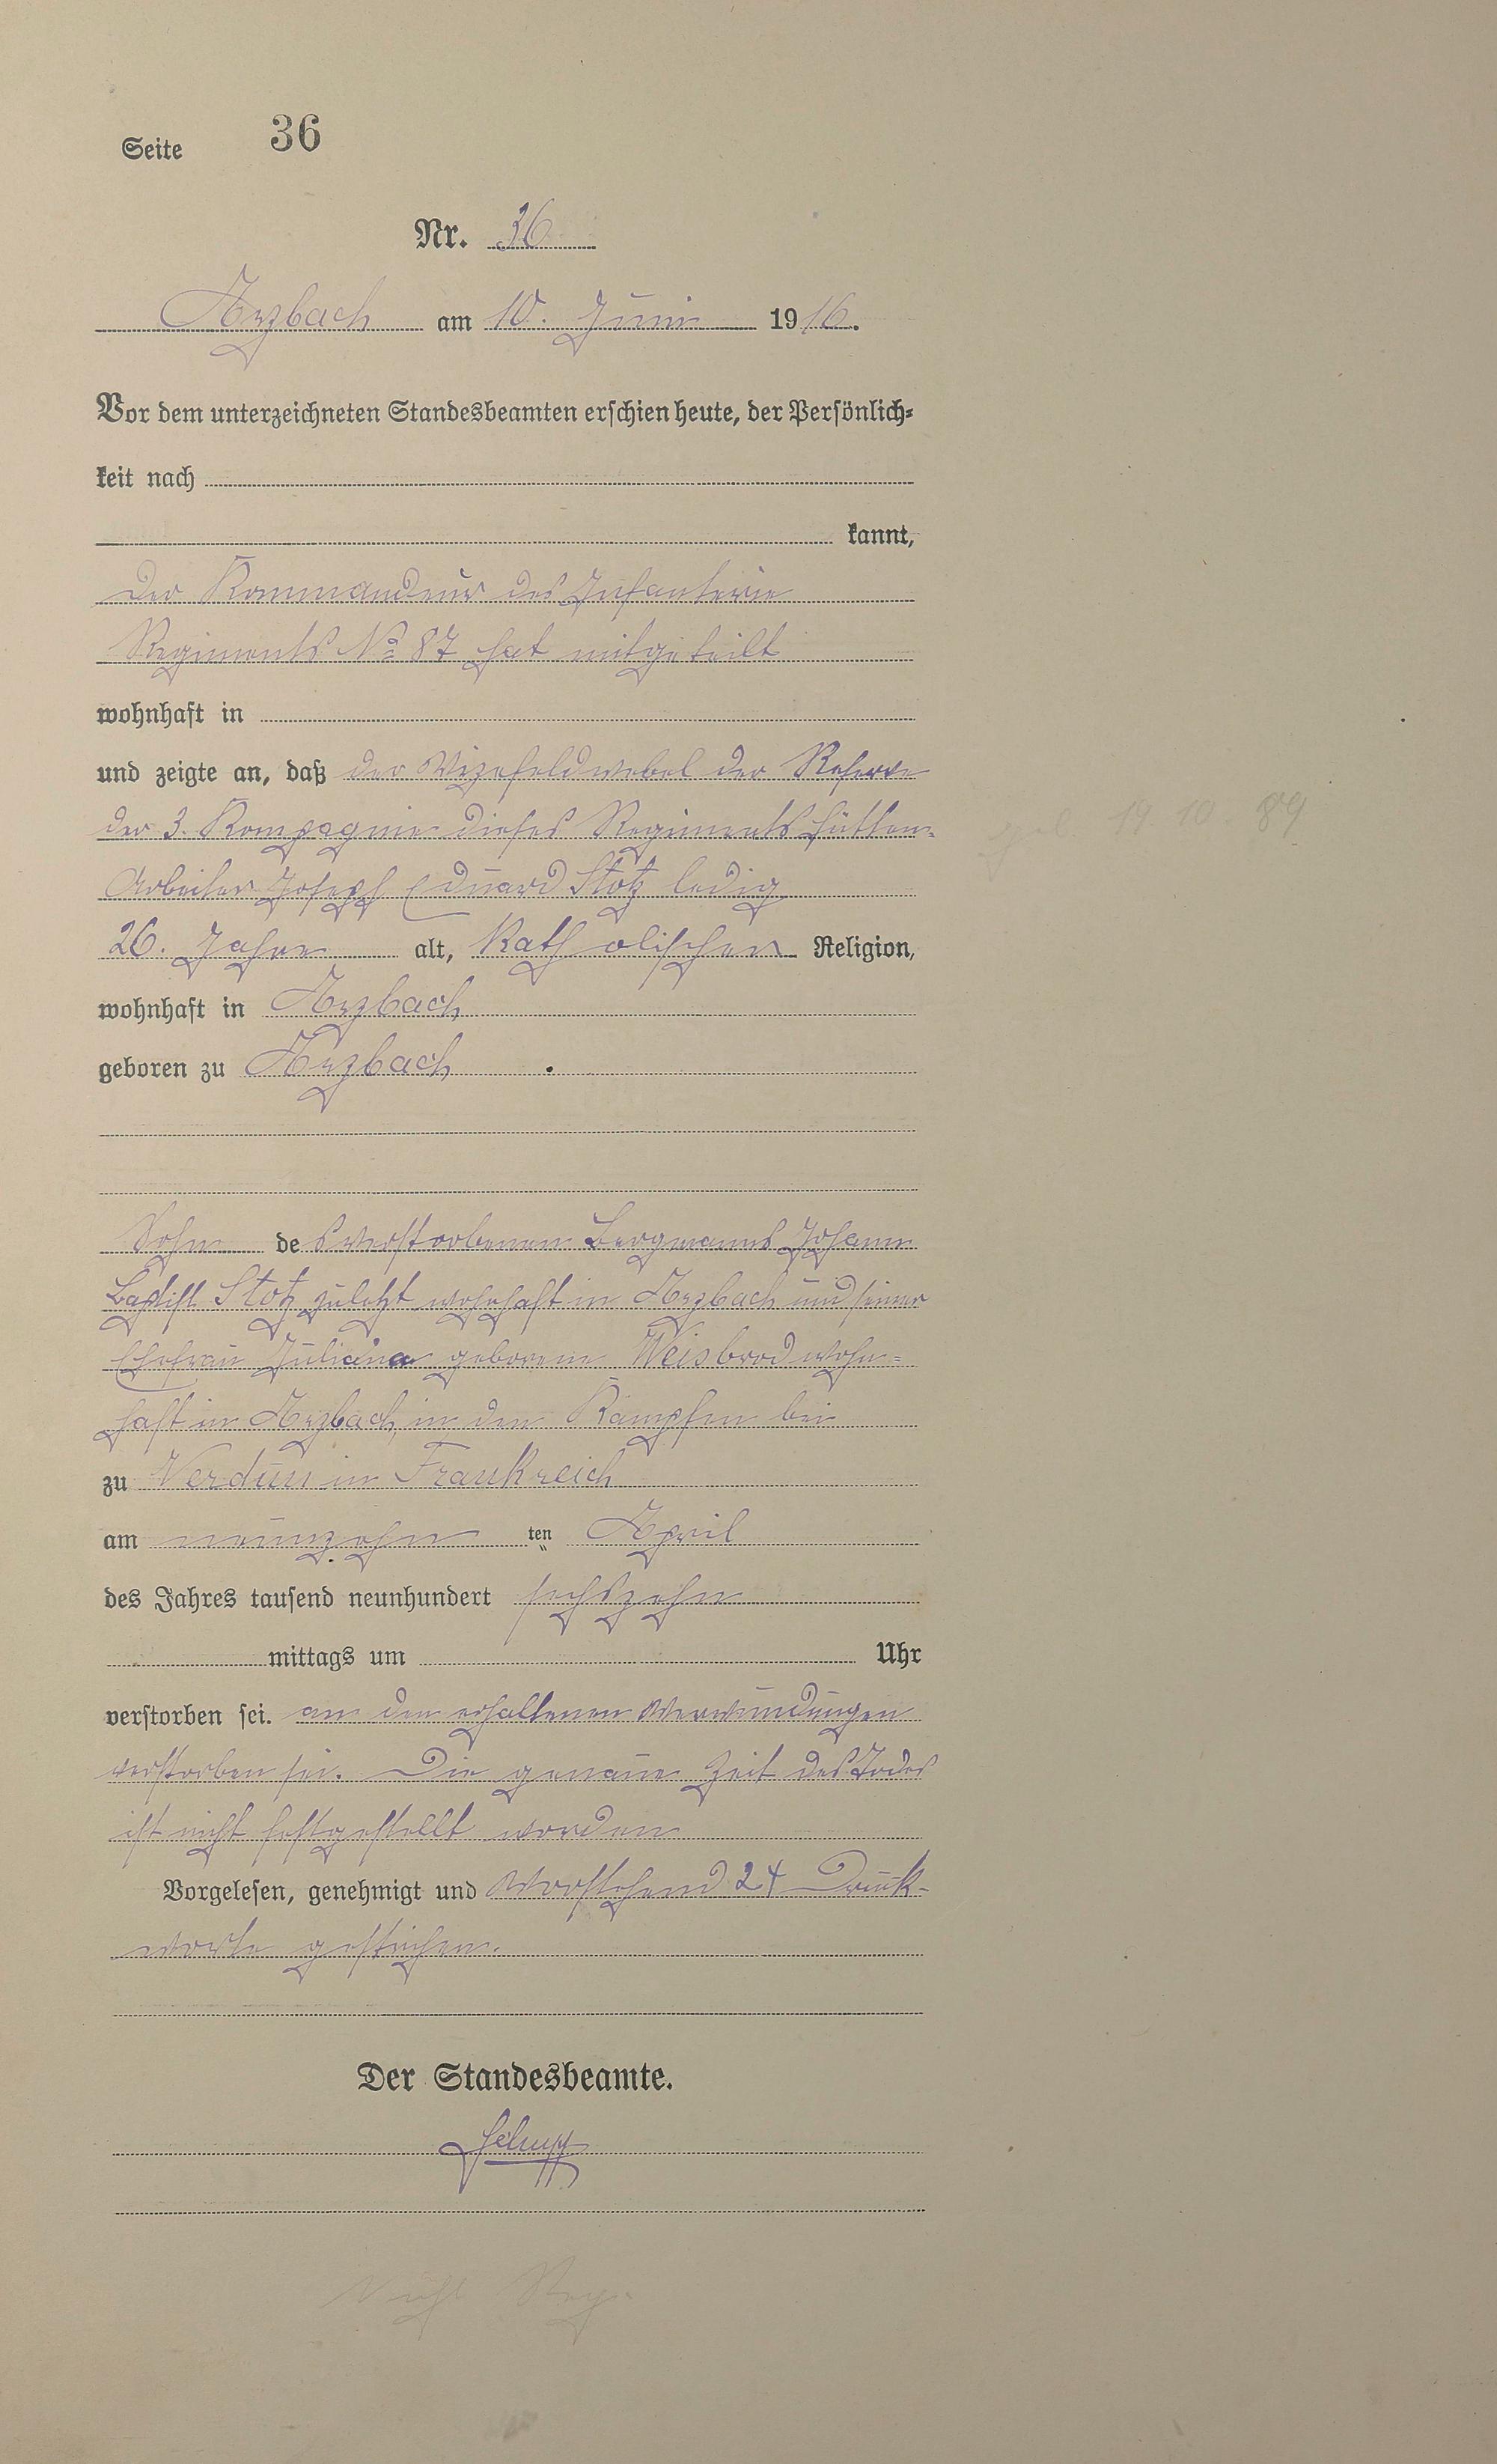 Seite 36
Nr. 36
Arzbach am 10. Juni 1916.
Vor dem unterzeichneten Standesbeamten erschien heute, der Persönlich-
keit nach
kannt,
Der Kommandeur des Infanterie
Regiments No 87 hat mitgeteilt
wohnhaft in
und zeigte an, daß der Vizefeldwebel der Reserve
der 3. Kompagnie dieses Regiments Hütten-
Arbeiter Joseph Eduard Stotz ledig
26. Jahre alt, Katholischer Religion,
wohnhaft in Arzbach
geboren zu Arzbach
Sohn des verstorbenen Bergmanns Johann
Baptist Stotz zuletzt wohnhaft in Arzbach und seiner
Ehefrau Juliana geborene Weisbrod wohn-
haft in Arzbach, in den Kämpfen bei
zu Verdun in Frankreich
am neunzehn ten April
des Jahres tausend neunhundert sechszehn
mittags um Uhr
verstorben sei. an den erhaltenen Verwundungen
verstorben sei. Die genaue Zeit des Todes
ist nicht festgestellt worden
Vorgelesen, genehmigt und Vorstehend 24 Druck-
worte gestrichen.
Der Standesbeamte.
geb. 19. 10. 89